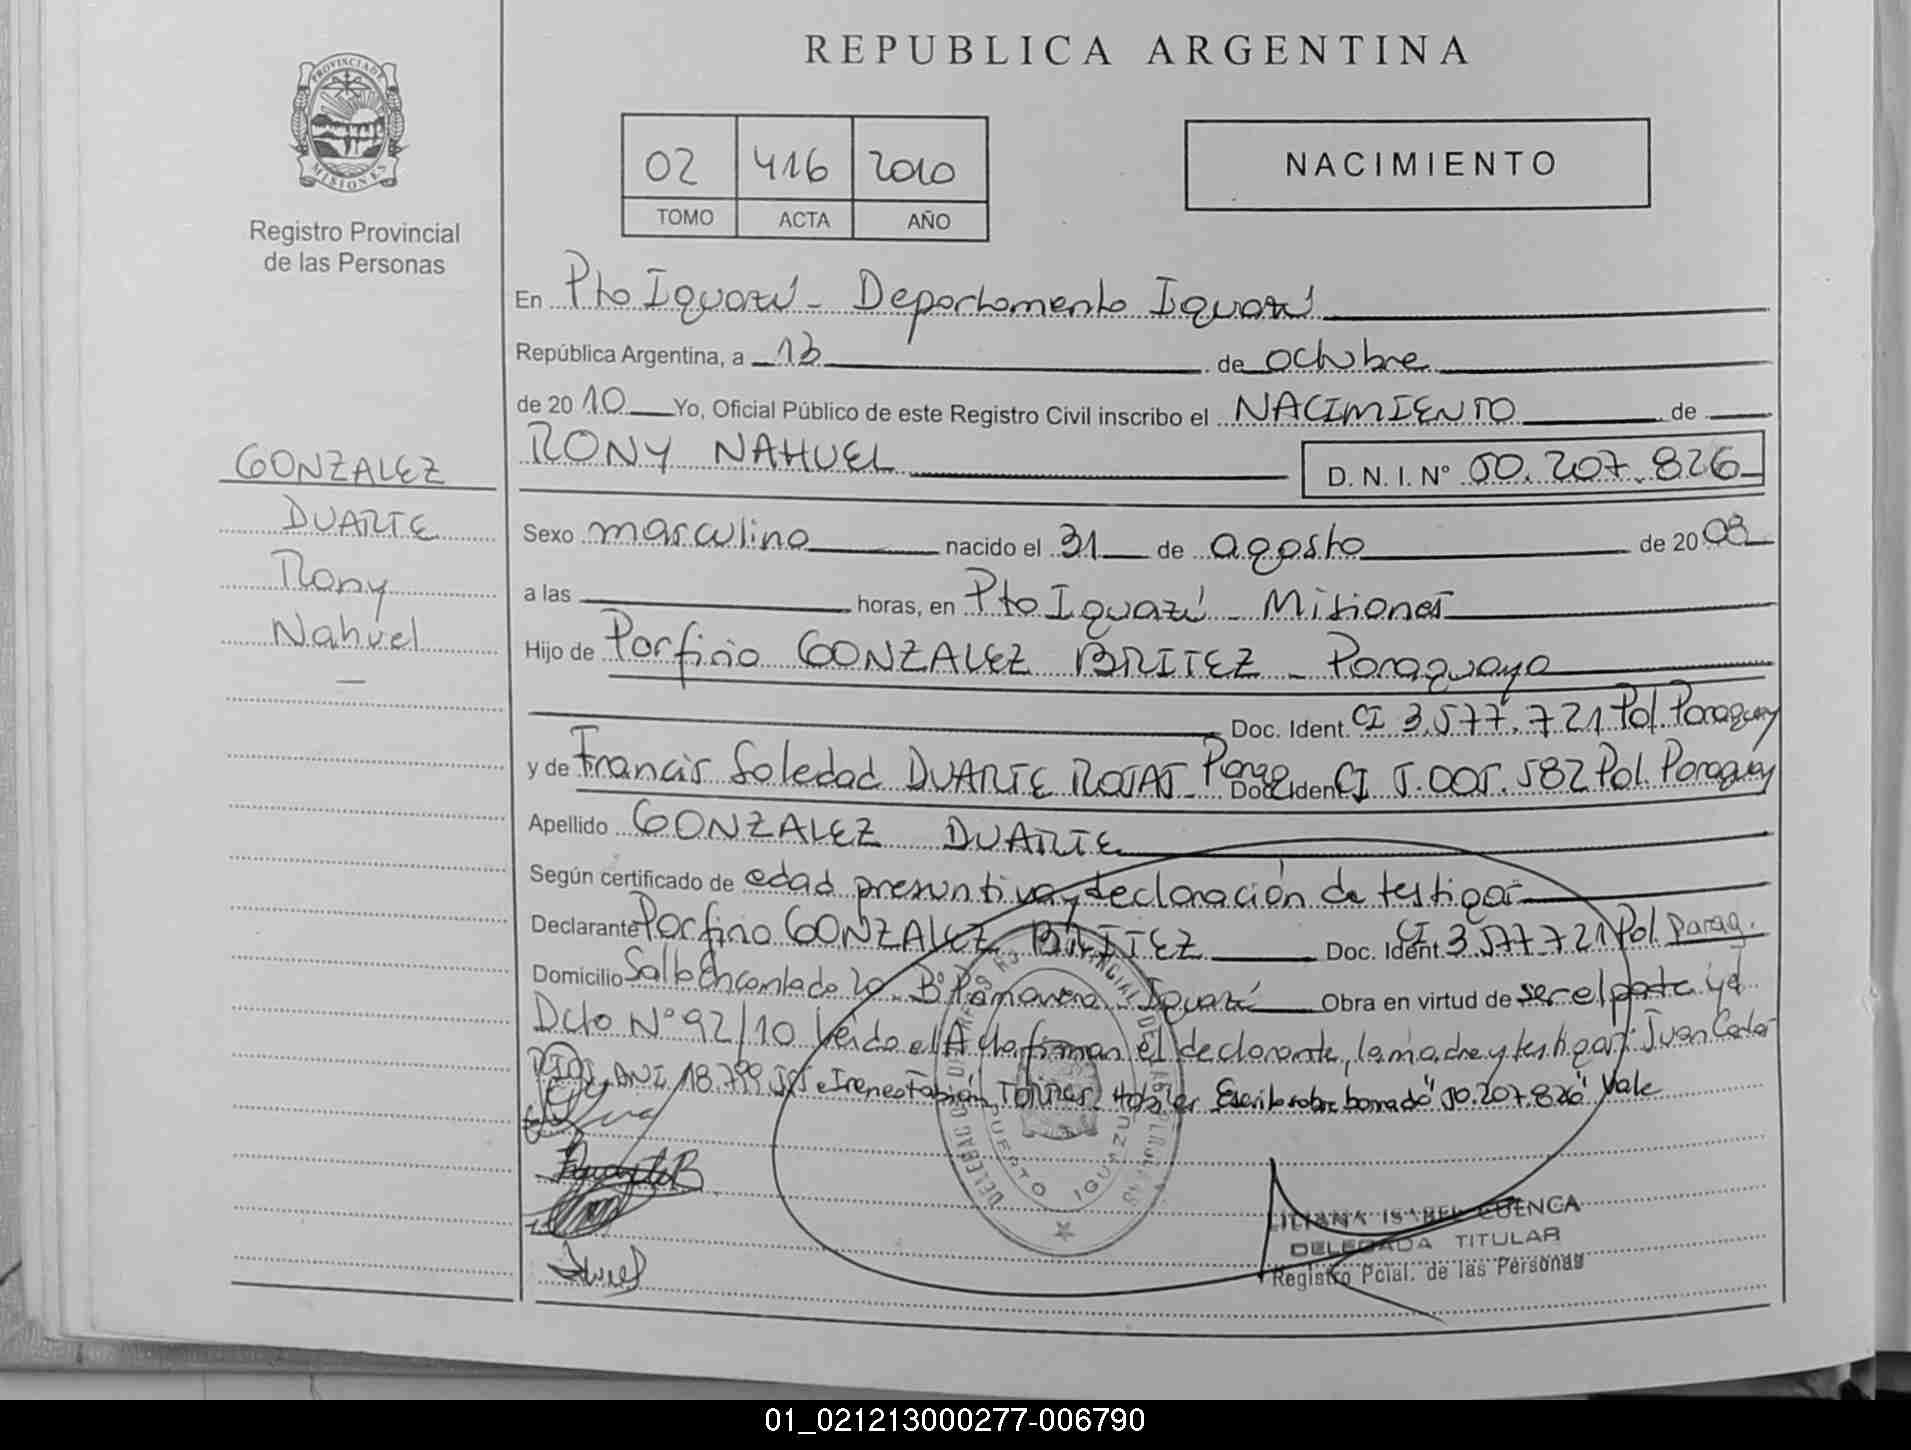 REPUBLICA ARGENTINA
PROVINCIA DE MISIONES
Registro Provincial
de las Personas
02 416 2010
TOMO ACTA AÑO
NACIMIENTO
En Pto Iguazú - Departamento Iguazú
República Argentina, a 13 de octubre
de 2010 Yo, Oficial Público de este Registro Civil inscribo el NACIMIENTO de
RONY NAHUEL D. N. I. Nº 50.207.826
GONZALEZ
DUARTE
Rony
Nahuel
Sexo masculino nacido el 31 de agosto de 2008
a las horas, en Pto Iguazú - Misiones
Hijo de Porfirio GONZALEZ BRITEZ - Paraguaya
Doc. Ident. CI 3.577.721 Pol. Paraguay
y de Francis Soledad DUARTE ROJAS - Parag Doc. Ident. CI 5.005.582 Pol. Paraguay
Apellido GONZALEZ DUARTE
Según certificado de edad presuntiva y declaración de testigos
Declarante Porfirio GONZALEZ BRITEZ Doc. Ident. CI 3.577.721 Pol. Parag.
Domicilio Salto Encantado 20 - Bº Primavera - Iguazú Obra en virtud de ser el padre y el
Dcto Nº 92/10 Leída el Acta firman el declarante, la madre y testigos: Juan Carlos
DNI 18.799 e Ireneo Fabián TORRES Escrito sobre borrado "50.207.826" Vale
PUERTO IGUAZU
LILIANA ISABEL CUENCA
DELEGADA TITULAR
Registro Pcial. de las Personas
01_021213000277-006790